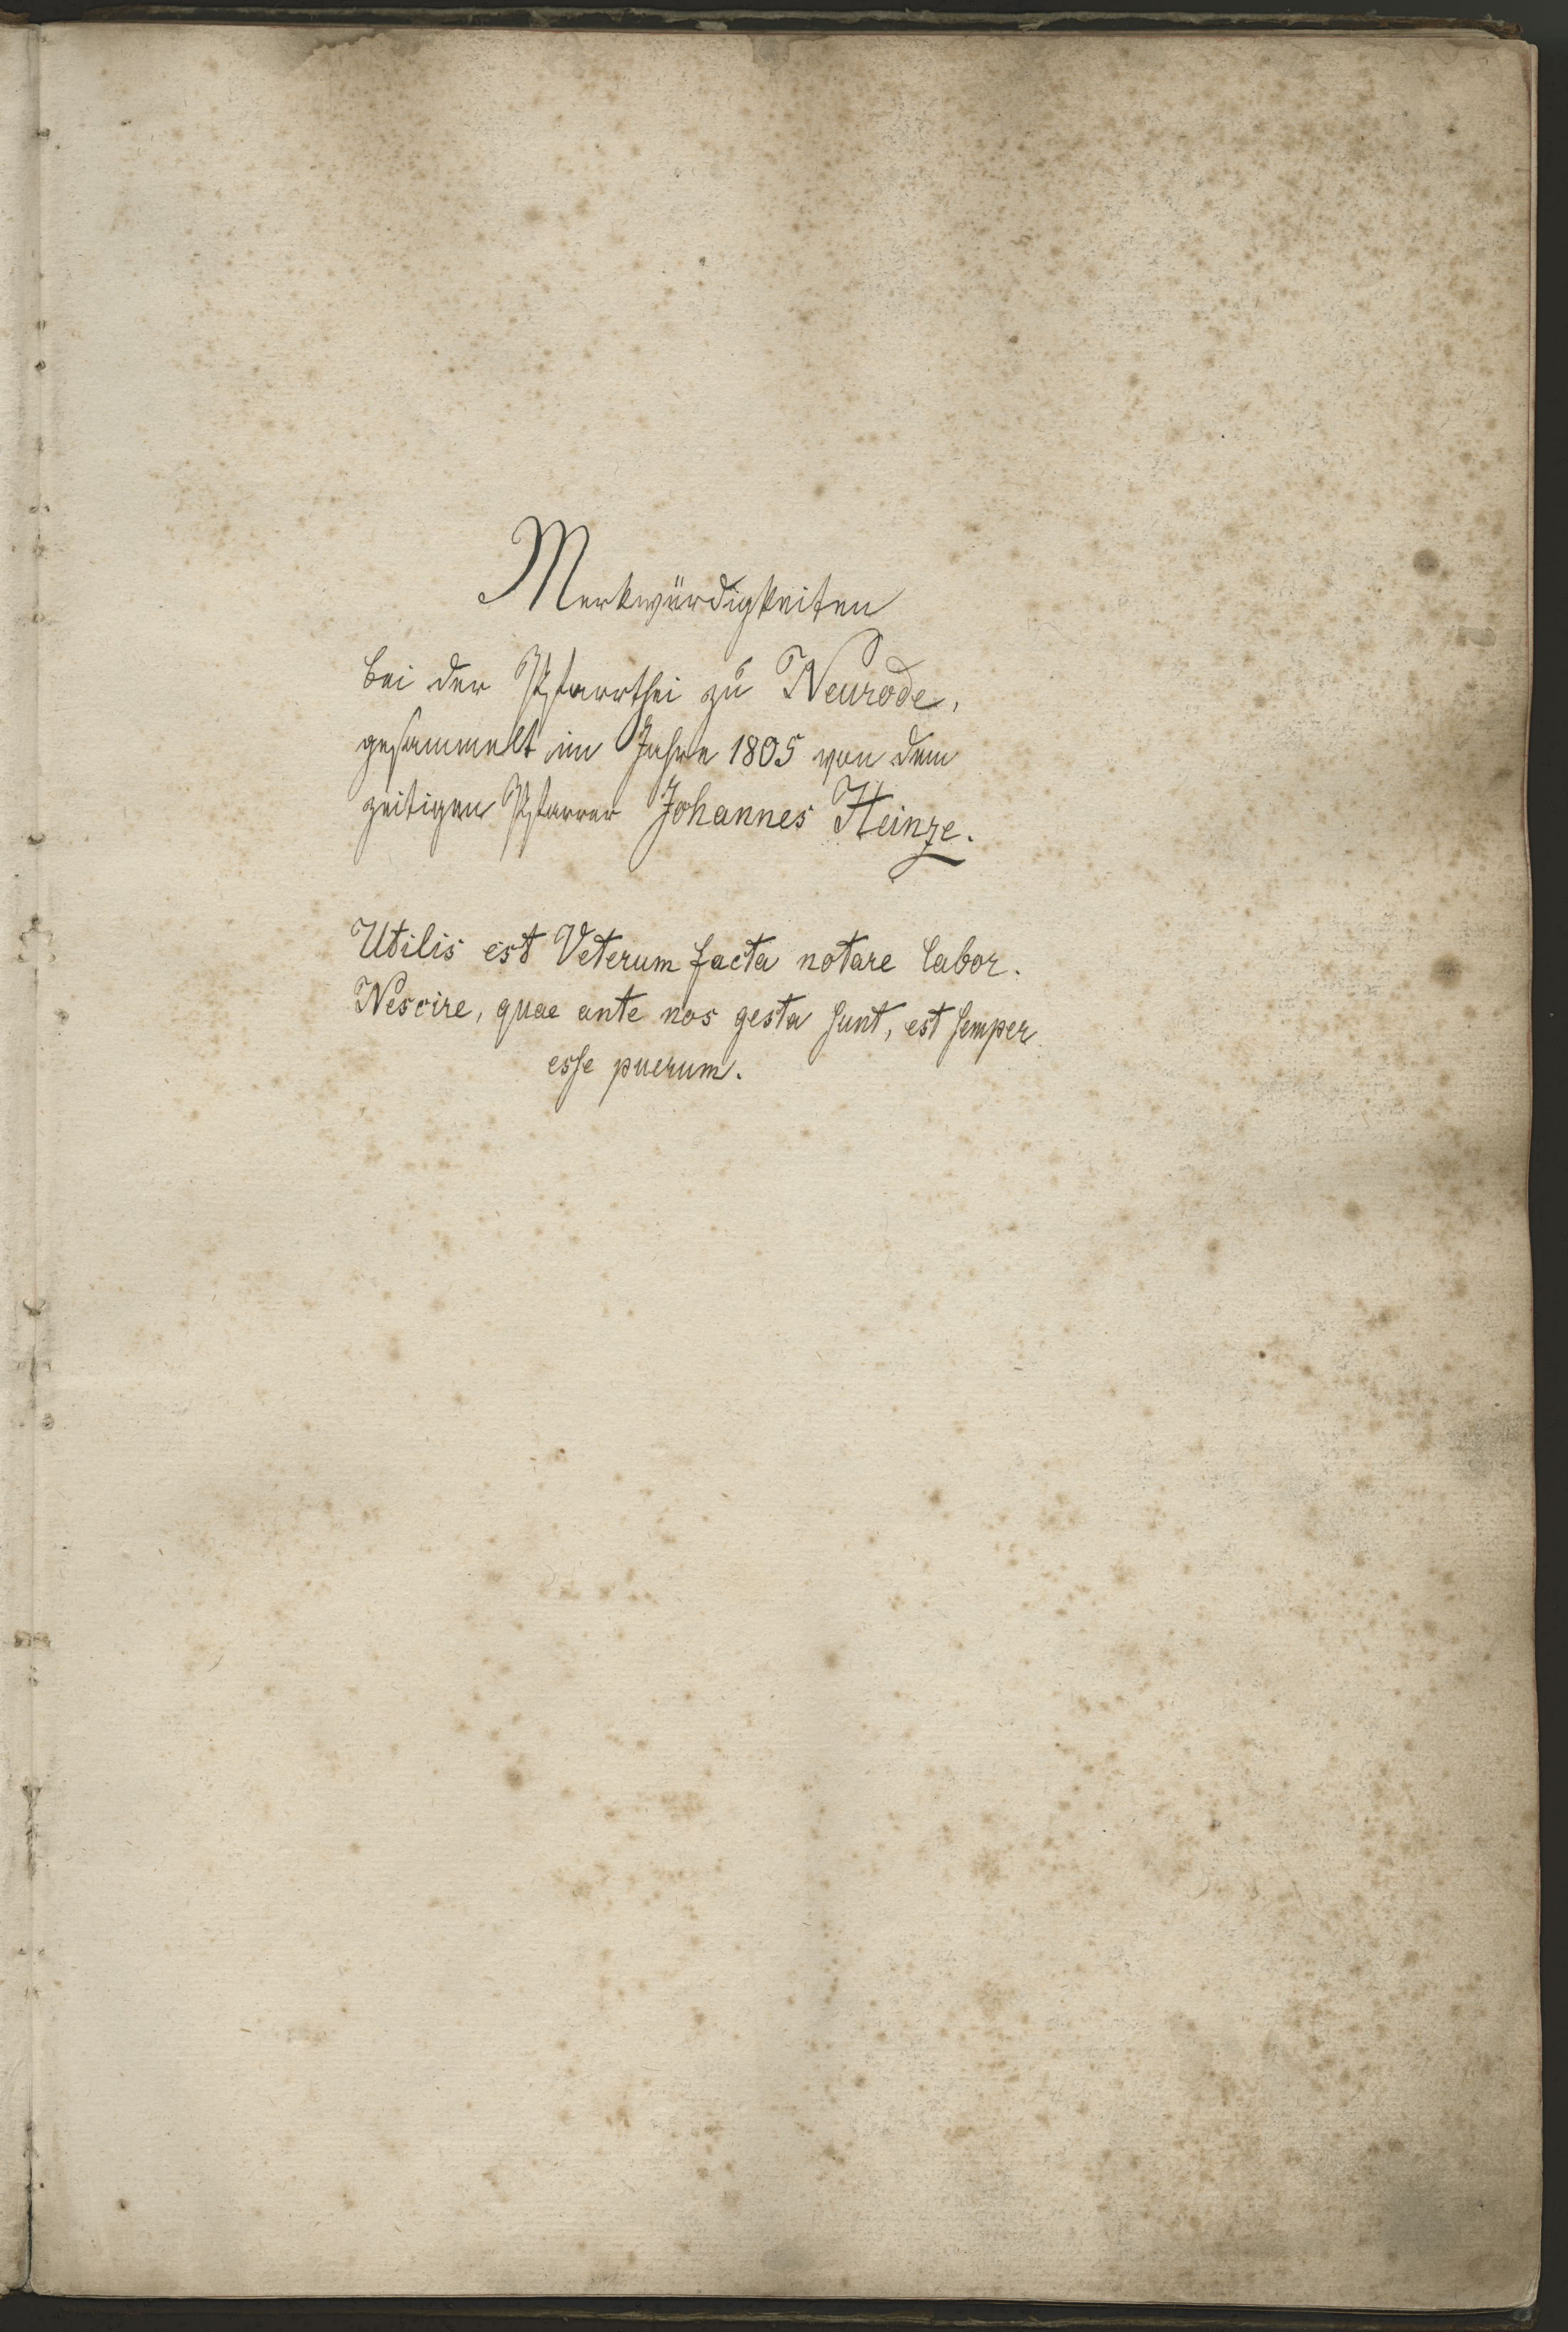 Merkwürdigkeiten
bei der Pfarrthei zu Neurode,
gesammelt im Jahre 1805 von dem
zeitigen Pfarrer Johannes Heinze.
Utilis est Veterum facta notare labor.
Nescire, quae ante nos gesta sunt, est semper
esse puerum.